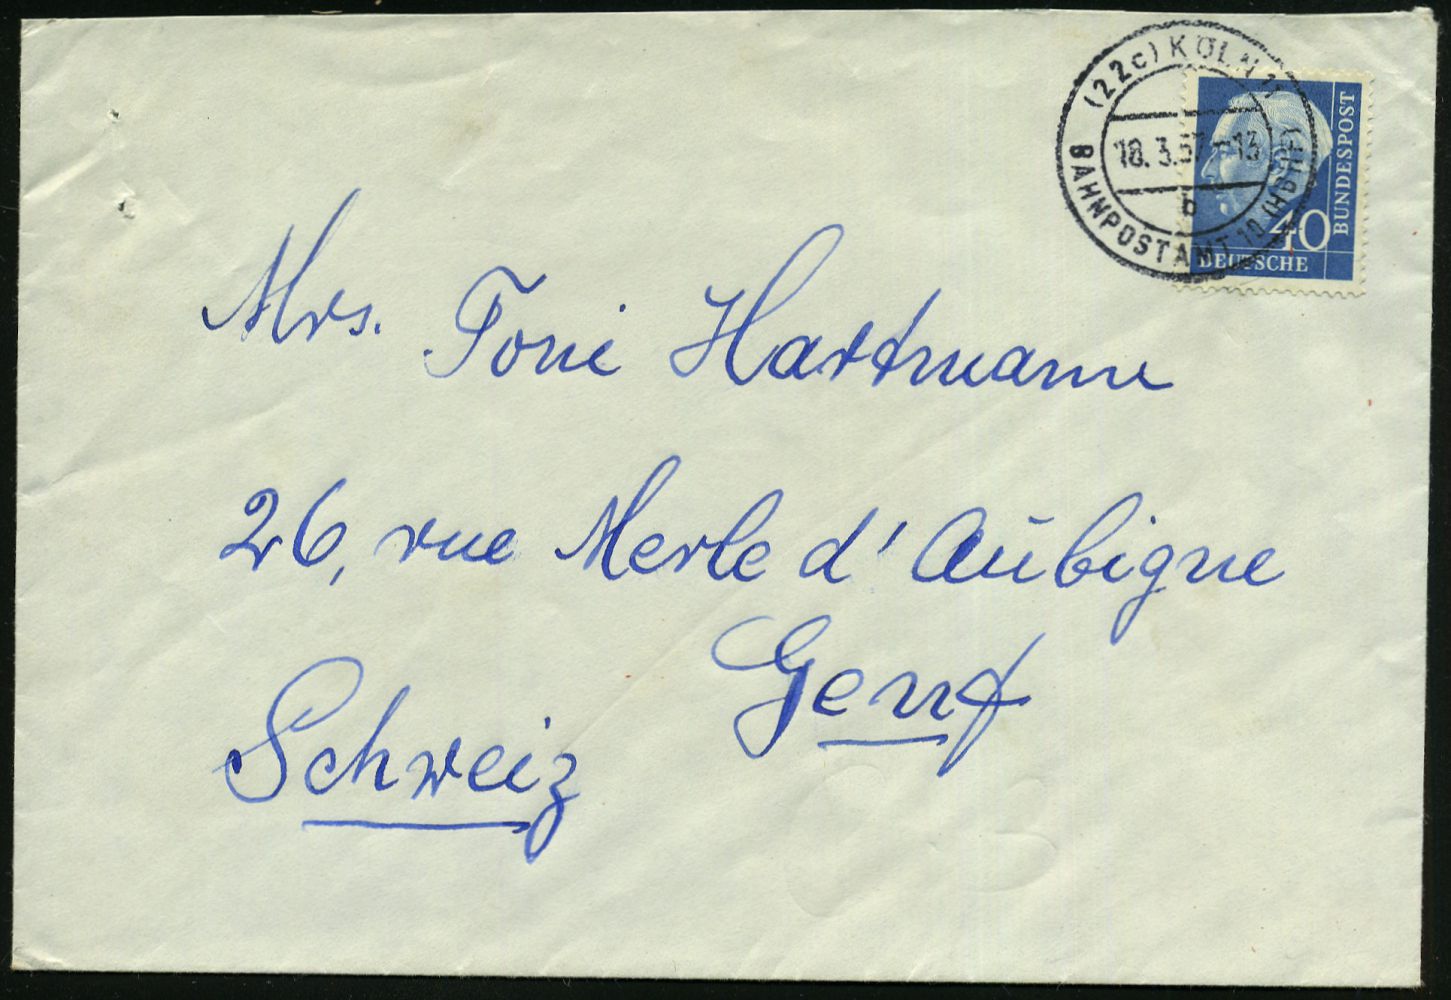 (22c) KÖLN 11
18. 3.57-13
b
BAHNPOSTAMT 10 (HBHF)
40
BUNDESPOST
DEUTSCHE
Mrs. Toni Hartmann
26, rue Merle d' Aubigne
Genf
Schweiz